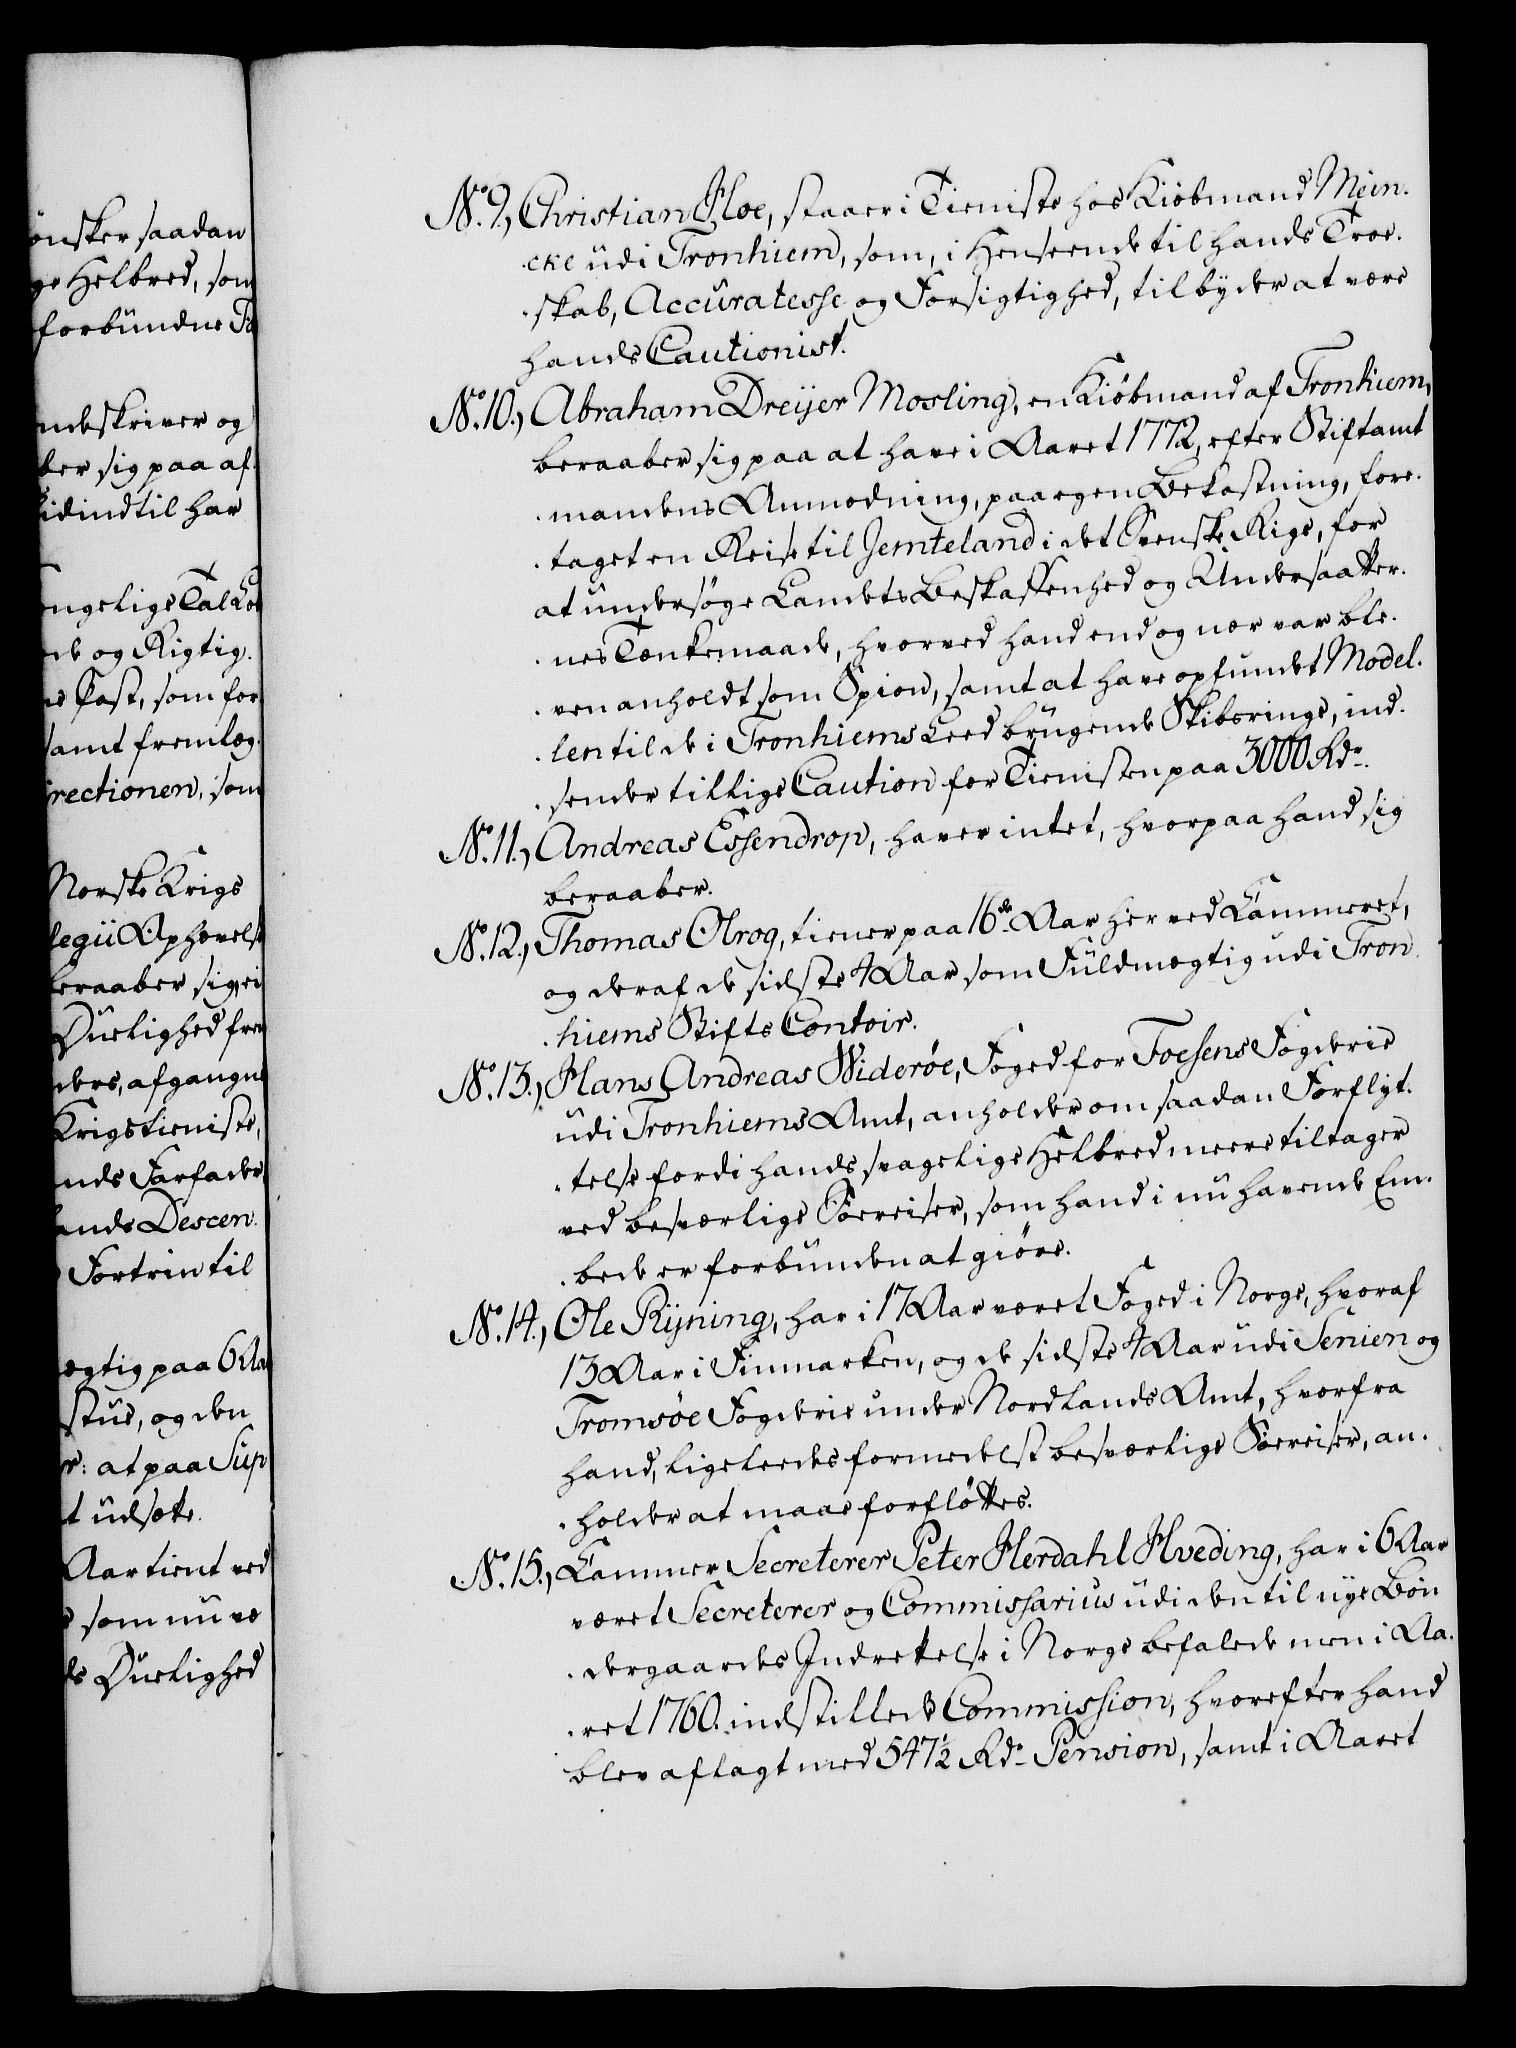 ønsker saadan
ge Helbred, som
forbundne
ndeskriver og
ber sig paa af¬
hidindtil har
engelige Tal
de og Rigtig¬
ne Post, som for
samt fremlæg¬
rectionen, som
Norske Krigs
legii Ophævelse
beraaber sig, ei
Duelighed frem
ders, afgangne
Krigstieniste,
nds Forfædre
ands Descen¬
Fortrin til
ægtig paa 6 Aa
stus, og den
r: at paa Sup
t udsætte.
Aar tient ved
som nu væ
ds Duelighed
No. 9., Christian Hoe, staaer i Tieniste hos Kiøbmand Mein¬
cke udi Tronhiem, som, i Henseende til hands Troe¬
skab, Accuratesse og Forsigtighed, tilbyder at være
hands Cautionist.
No. 10., Abraham Dreijer Mosling, en Kiøbmand af Tronhiem,
beraaber sig paa at have i Aaret 1772, efter Stiftamt
mandens Anmodning, paa egen Bekostning, fore¬
taget en Reise til Jemteland i det Svenske Rige, for
at undersøge Landets Beskaffenhed og Undersaatter¬
nes Tænkemaade, hvorved hand endog nær var ble¬
ven anholdt som Spion, samt at have opfundet Model¬
len til de i Tronhiems Leed brugende Skibsringe, ind¬
sender tillige Caution for Tienisten paa 3000 Rdr.
No. 11., Andreas Essendrop, haver intet, hvorpaa hand sig
beraaber.
No. 12., Thomas Olrog, tiener paa 16de Aar her ved Cammeret,
og deraf de sidste 4 Aar som Fuldmægtig udi Tron¬
hiems Stifts Contoir.
No. 13., Hans Andreas Widerøe, Foged for Foesens Fogderie
udi Tronhiems Amt, anholder om saadan Forflyt¬
telse fordi hands svagelige Helbred meere tiltager
ved besværlige Søereiser, som hand i nu havende Em¬
bede er forbunden at giøre.
No. 14., Ole Rijning, har i 17 Aar været Foged i Norge, hvoraf
13 Aar i Finmarken, og de sidste 4 Aar udi Senien og
Tromsøe Fogderie under Nordlands Amt, hvorfra
hand, ligeledes formedelst besværlige Søereiser, an¬
holder at maae forfløttes.
No. 15., Cammer Secreterer Peter Herdahl Hveding, har i 6 Aar
været Secreterer og Commissarius udi den til nye Bøn
dergaardes Indrettelse i Norge befalede men i Aa¬
ret 1760. indstillede Commission, hvorefter hand
blev aflagt med 547½ Rdr Pension, samt i Aaret